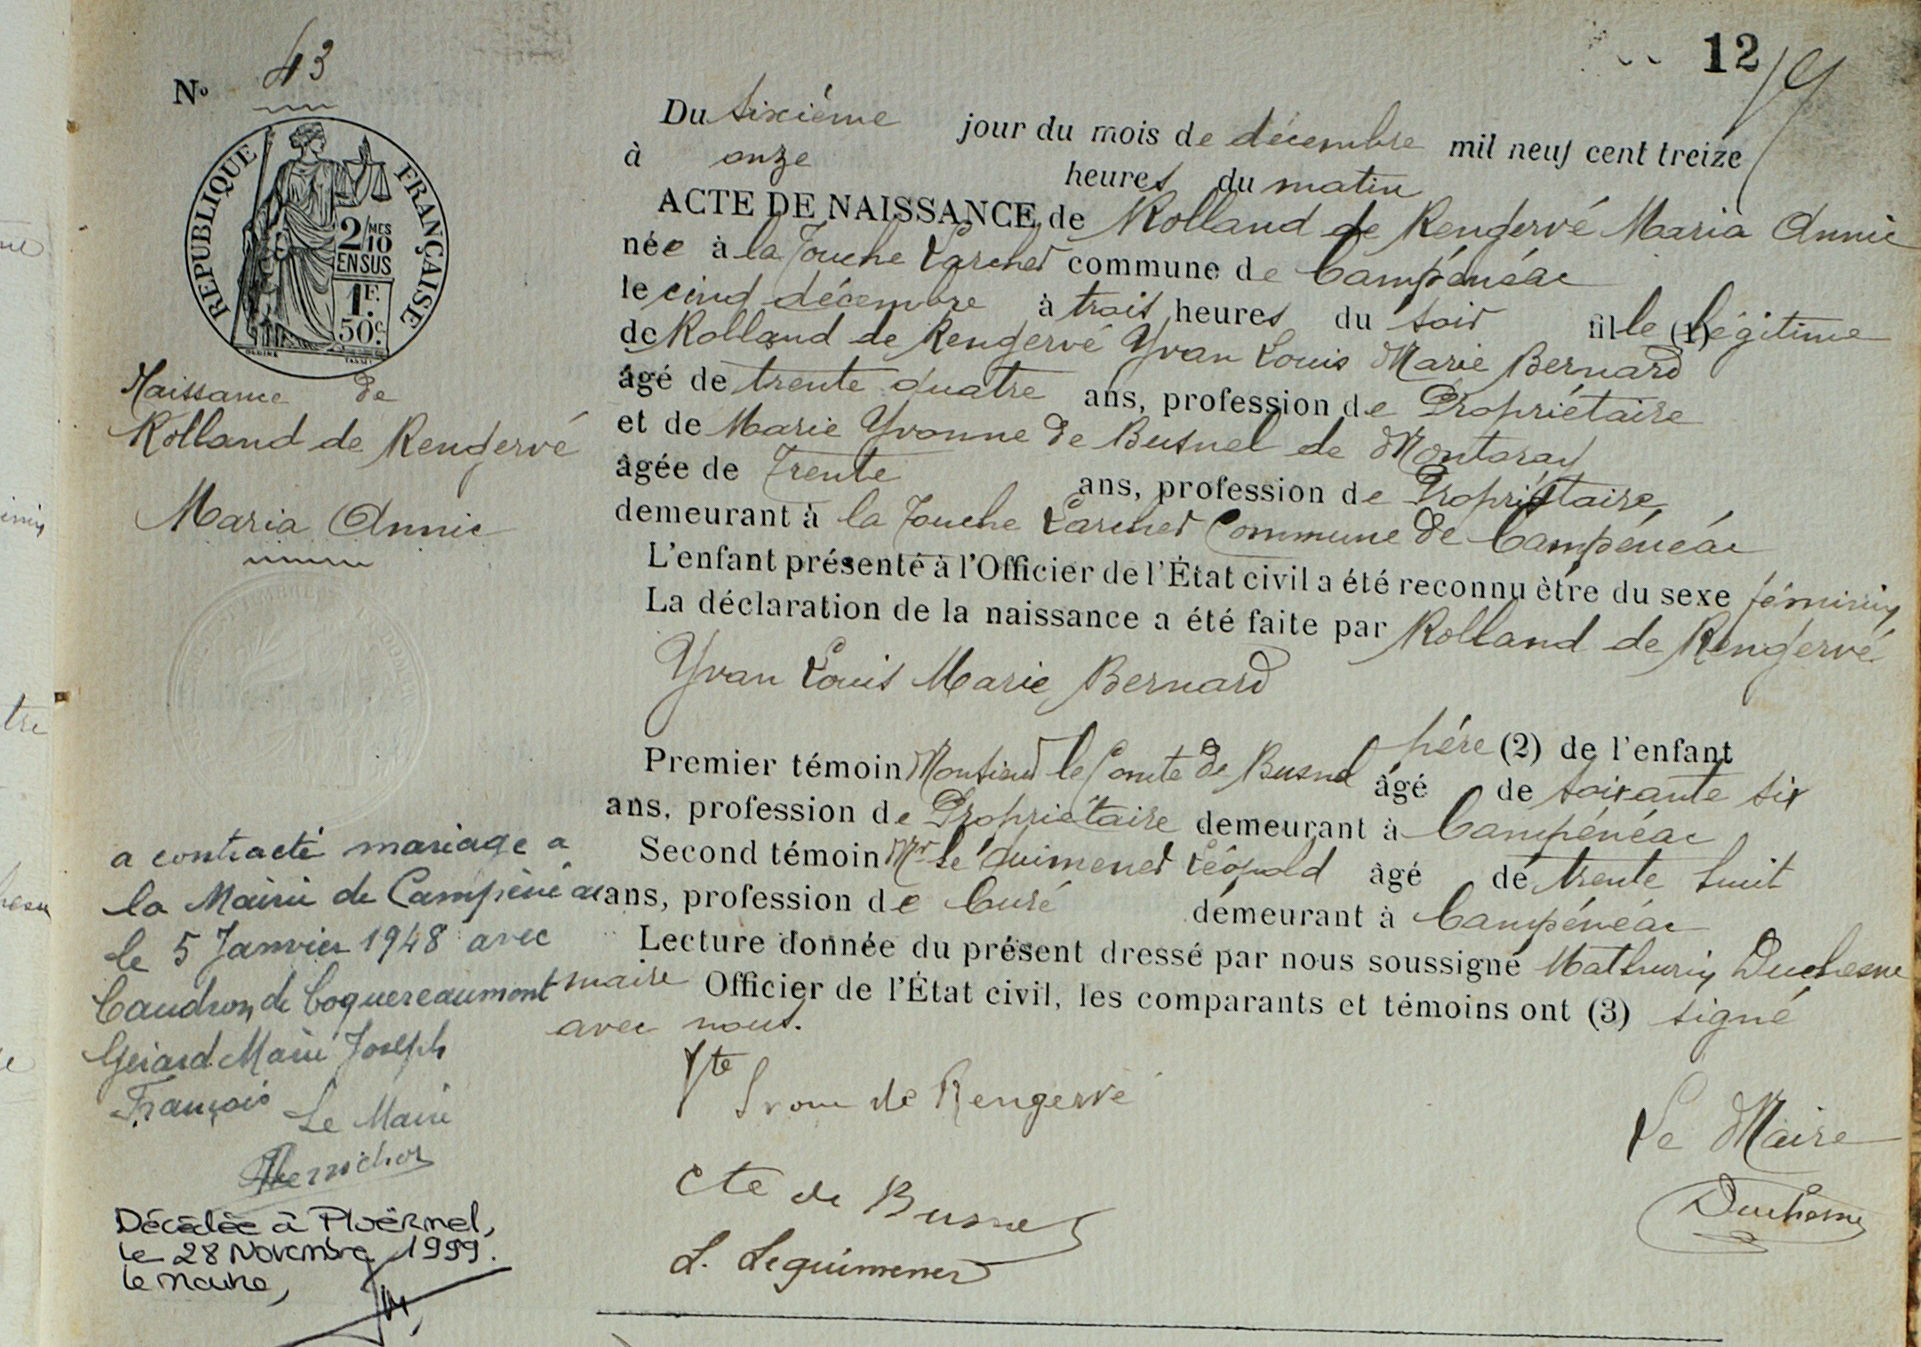 12
N° 43
RÉPUBLIQUE FRANÇAISE
2/10 MES
EN SUS
1 F.
50 c.
Naissance de
Rolland de Rengervé
Maria Annie
a contracté mariage a
la Mairie de Campénéac
le 5 Janvier 1948 avec
Caudron de Coquereaumont
Gérard Marie Joseph
François
Le Maire
Décédée à Ploërmel,
le 28 Novembre 1999.
le maire,
Du sixième jour du mois de décembre mil neuf cent treize
à onze heures du matin
ACTE DE NAISSANCE de Rolland de Rengervé Maria Annie
née à la Touche Larcher commune de Campénéac
le cinq décembre à trois heures du soir fille (1) légitime
de Rolland de Rengervé Yvan Louis Marie Bernard
âgé de trente quatre ans, profession de Propriétaire
et de Marie Yvonne de Busnel de Montoray
âgée de Trente ans, profession de Propriétaire
demeurant à la Touche Larcher Commune de Campénéac
L'enfant présenté à l'Officier de l'État civil a été reconnu être du sexe féminin
La déclaration de la naissance a été faite par Rolland de Rengervé
Yvan Louis Marie Bernard
père (2) de l'enfant
Premier témoin Monsieur le Comte de Busnel âgé de soixante six
ans, profession de Propriétaire demeurant à Campénéac
Second témoin Mr Le Quimener Léopold âgé de trente huit
ans, profession de Curé demeurant à Campénéac
Lecture donnée du présent dressé par nous soussigné Mathurin Duchesne
maire Officier de l'État civil, les comparants et témoins ont (3) signé
avec nous.
Vte Yvan de Rengervé
Cte de Busnel
L. Leguimener
Le Maire
Duchesne